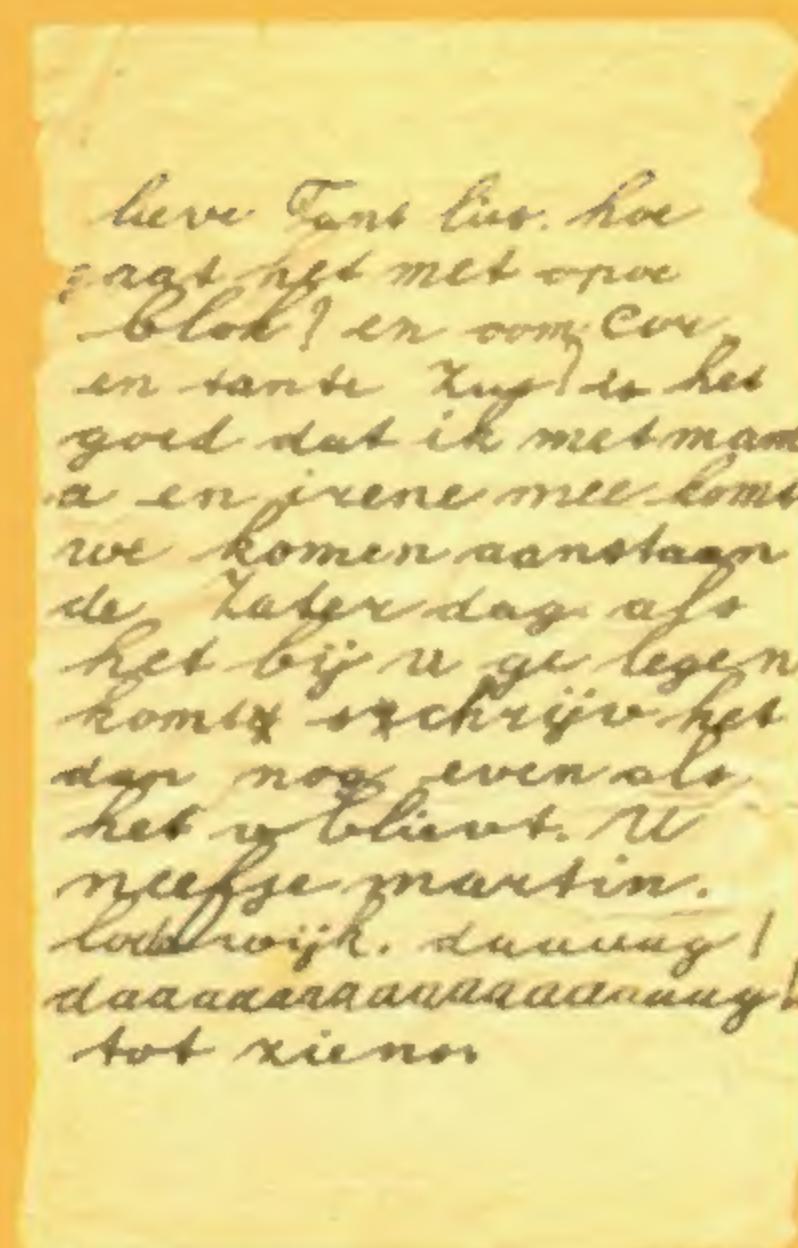 lieve Tant lies. hoe
gaat het met opoe
blok? en oom Cor
en tante Zus? is het
goed dat ik met mam
a en irene mee komt
we komen aanstaan
de Zater dag. als
het bij u ge legen
komt schrijv het
dan nog even als
het u blievt. U
neefje martin.
lodewijk. daaaaag!
daaaaaaaaaaaaaaaaaag!
tot ziens